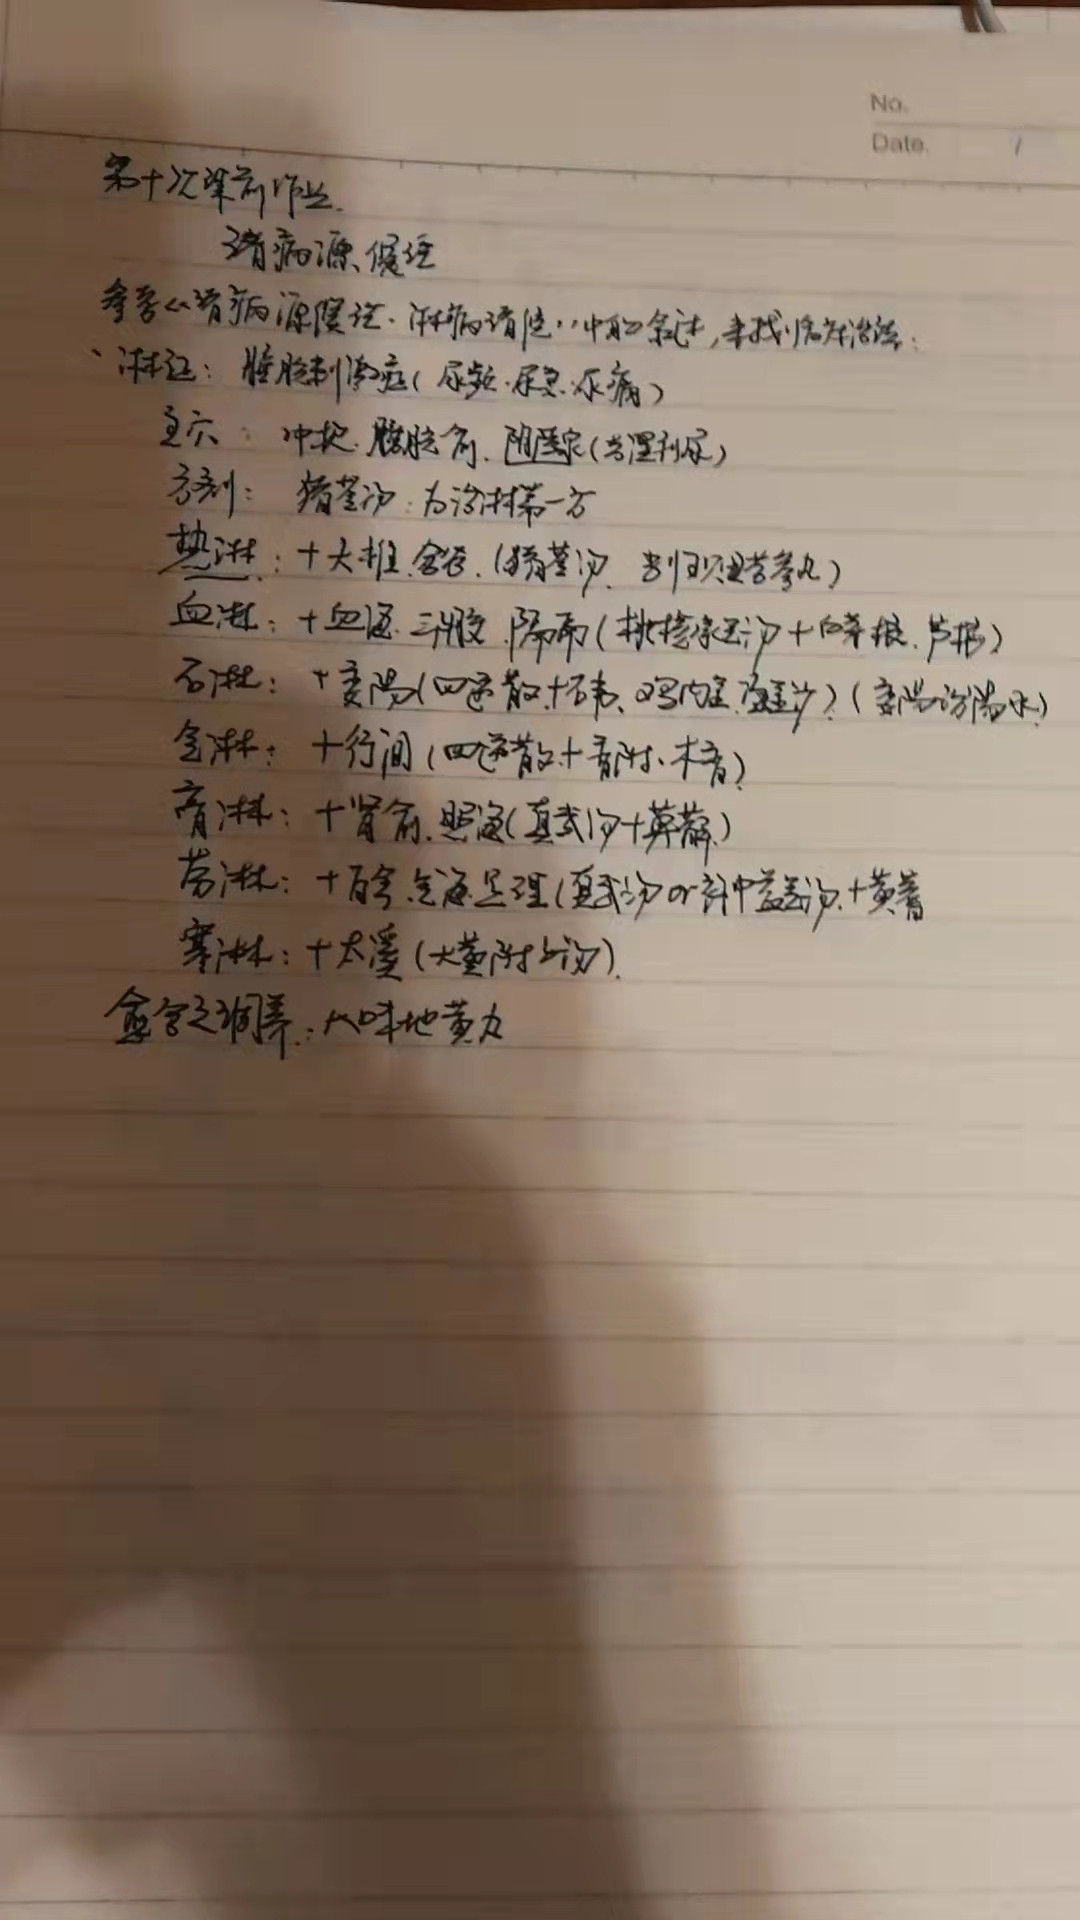 No.
Date. /
第十次课前作业.
诸病源候论
参考《诸病源候论·淋病诸候》中的条述,来找临床治法:
淋证: 膀胱刺激症(尿频.尿急.尿痛)
主穴: 中极.膀胱俞.阴陵泉(利尿)
方剂: 猪苓汤:为治淋第一方
热淋: +大椎.合谷.(猪苓汤. 当归贝母苦参丸)
血淋: +血海.三阴交.膈俞(桃核承气汤+白茅根.芦根)
石淋: +委阳(四逆散+石韦、鸡内金.海金沙)(委阳治阳水)
气淋: +行间(四逆散+香附、木香)
膏淋: +肾俞.照海(真武汤+萆薢)
劳淋: +百会.气海.足三里(真武汤or补中益气汤.+黄耆
寒淋: +太溪(大黄附子汤).
愈合之调养: 六味地黄丸